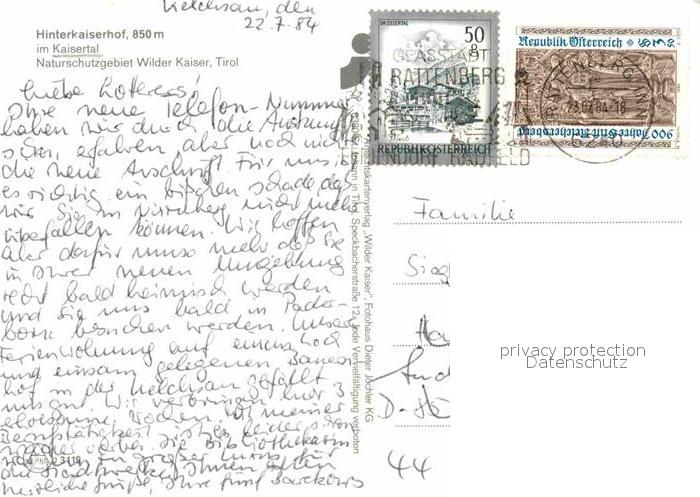 Kelchsau, den
22.7.84
Hinterkaiserhof, 850 m
im Kaisertal
Naturschutzgebiet Wilder Kaiser, Tirol
Liebe
Ihre neue Telefon-Nummer
haben wir durch die Auskunft
schon erfahren aber noch nicht
die neue Anschrift. Für uns ist
es richtig ein bißchen schade daß
wir Sie in Nürnberg nicht mehr
überfallen können. Wir hoffen
aber dafür umso mehr daß Sie
in Ihrer neuen Umgebung
recht bald heimisch werden
und Sie uns bald in Pader-
born besuchen werden. Unsere
Ferienwohnung auf einem hoch
und einsam gelegenen Bauern
hof in der Kelchsau gefällt
uns gut. Wir verbringen hier 3
Wochen. Mit meiner
Berufstätigkeit ist es leider schon
wieder vorbei. Die Bibliothekarin
die
herzliche Grüße, Ihre fünf
IM ZILLERTAL
50 g
REPUBLIK ÖSTERREICH
GLASSTADT
RATTENBERG
Republik Österreich S 3.50
900 Jahre Stift Reichersberg
RATTENBERG, INN
23.07.84-18
6240
Ansichtskartenverlag „Wilder Kaiser“, Fotohaus Dieter Jöchler KG
in Tirol, Speckbacherstraße 12, Jede Vervielfältigung verboten
Familie
Sieg
Ha
D-
44
privacy protection
Datenschutz